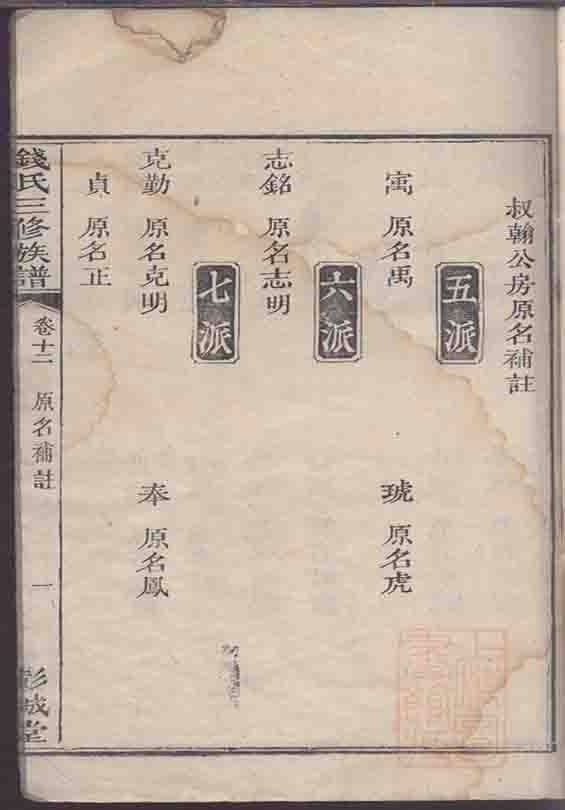 叔翰公房原名補註
五派
寓 原名禹
琥 原名虎
六派
志銘 原名志明
七派
克勤 原名克明
奉 原名鳳
貞 原名正
錢氏三修族譜 卷十二 原名補註 一 彭城堂